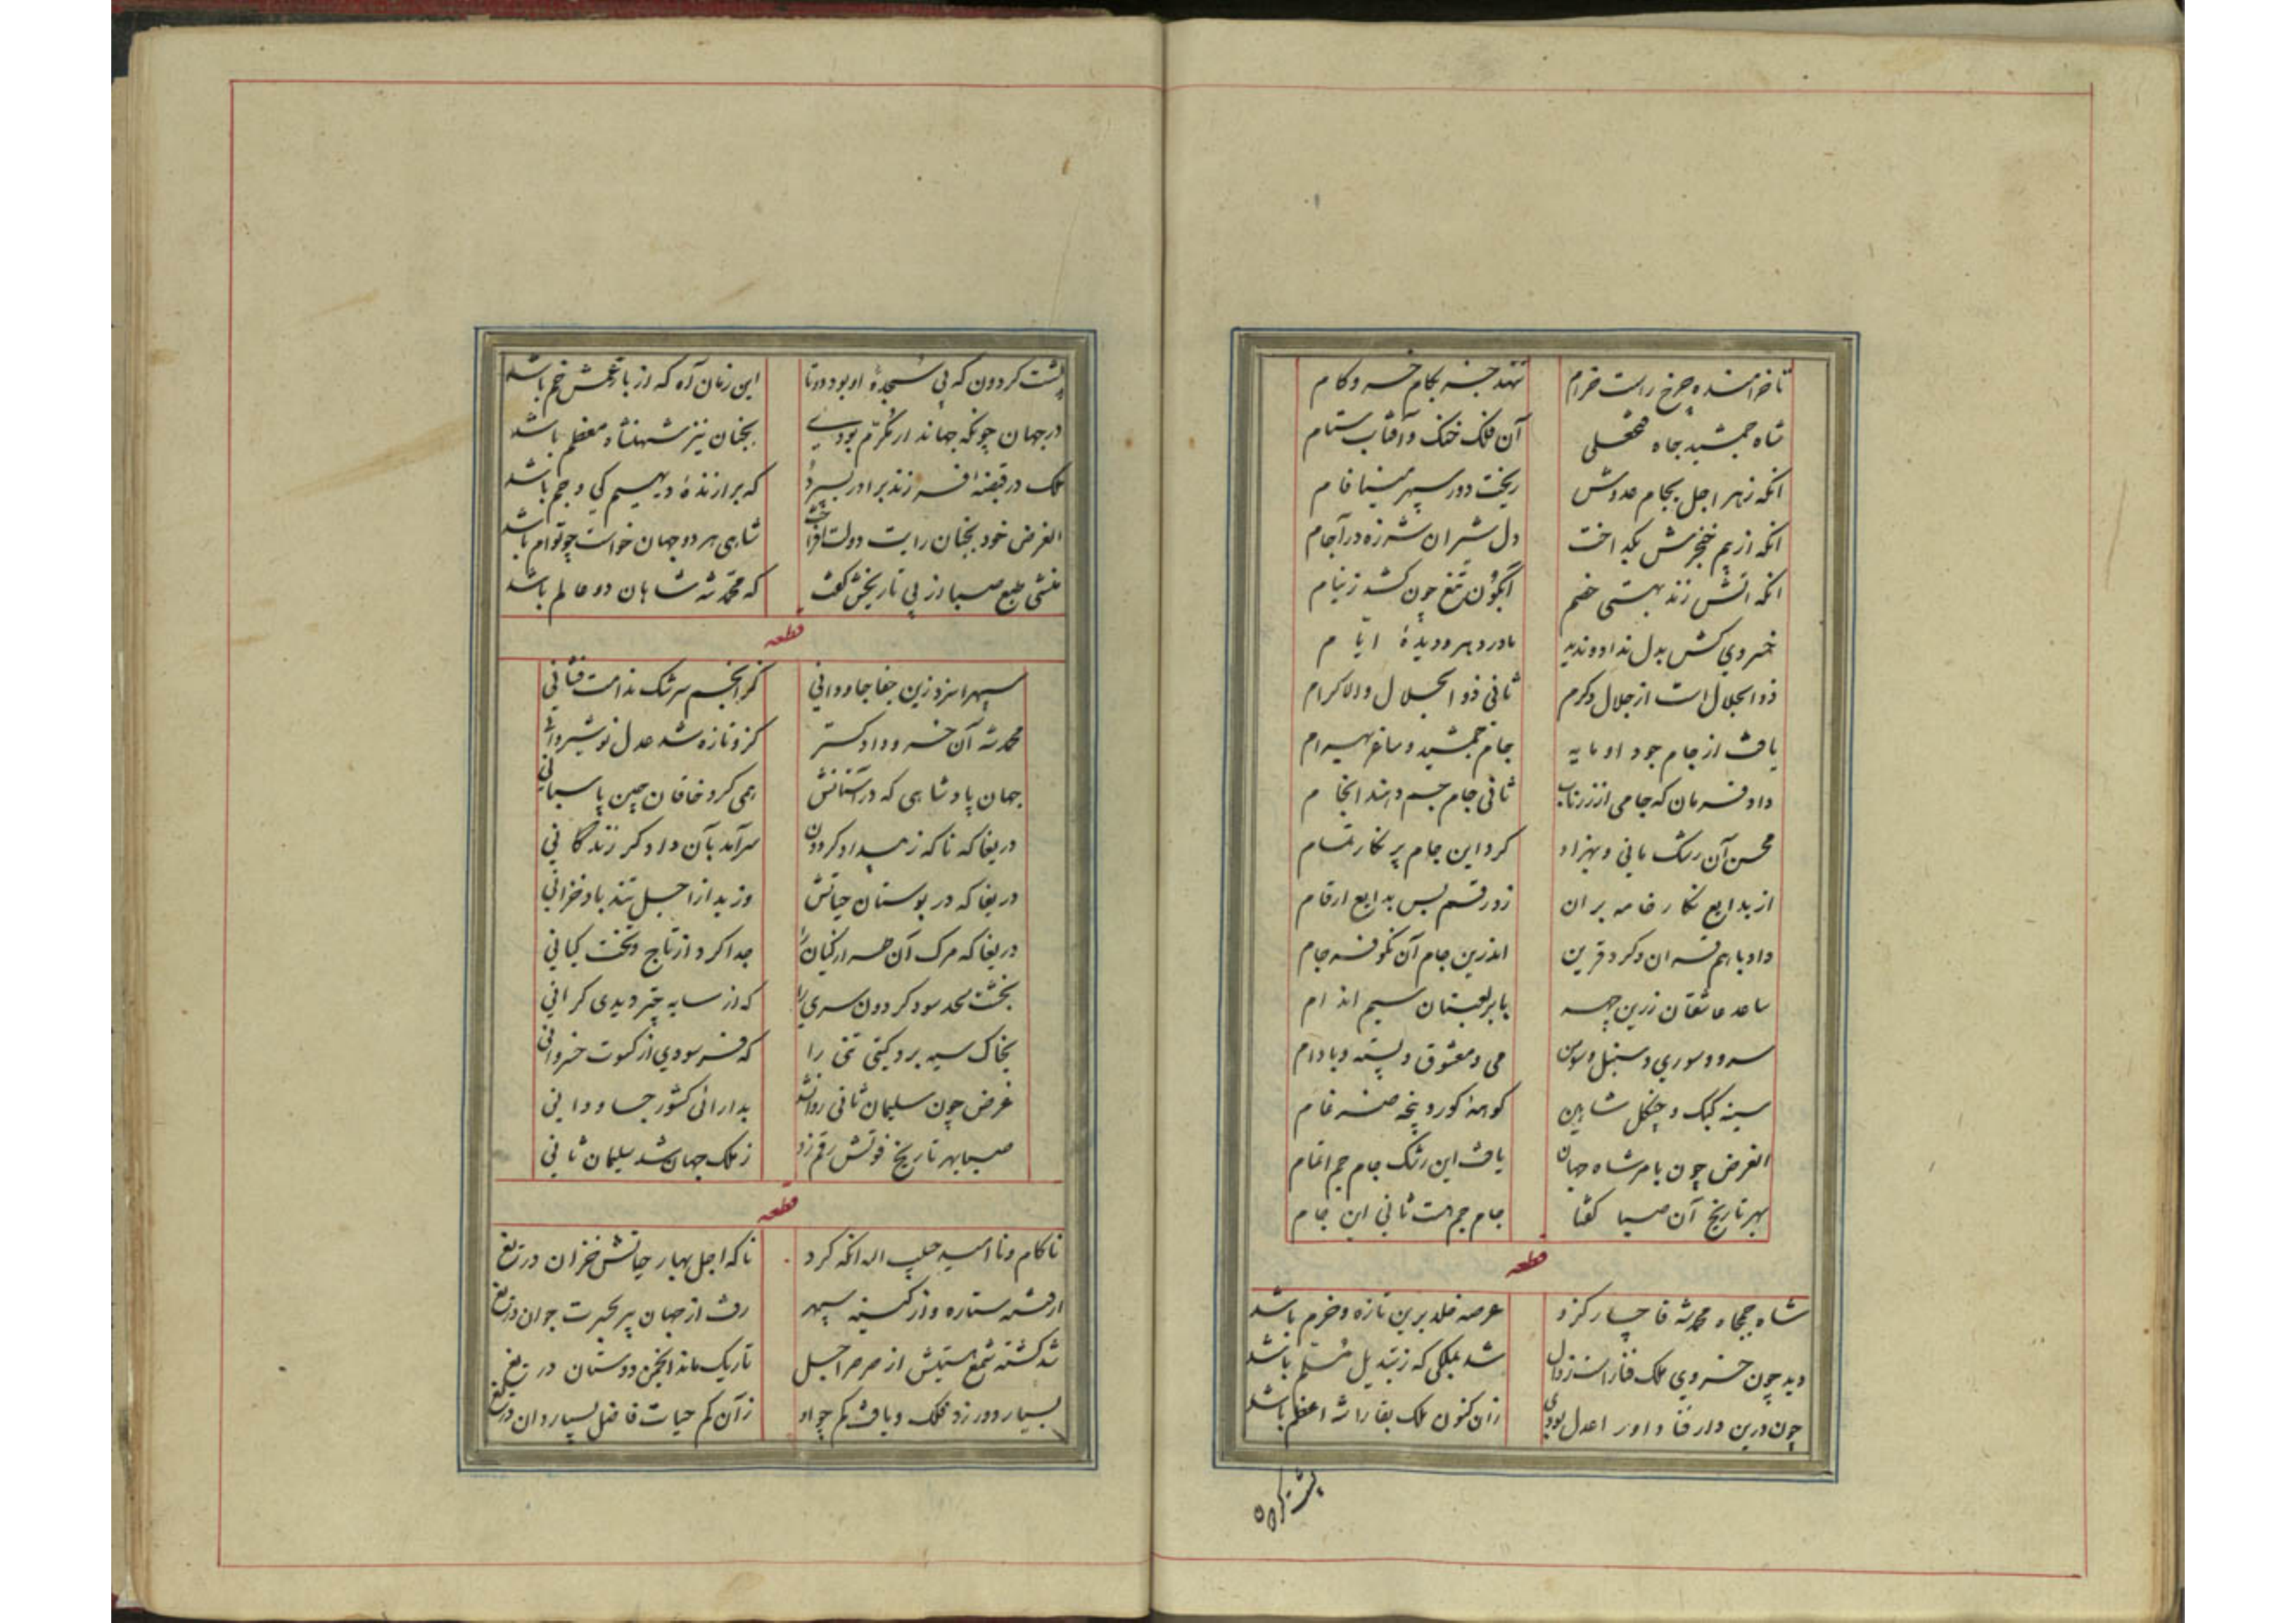 تا خرامنده چرخ راست خرام
ننهد جز بکام خسرو کام
شاه جمشید جاه فتحعلی
آن فلک خنک و آفتاب ستام
انکه زهر اجل بجام عدوش
ریخت دور سپهر مینا فام
انکه از بیم خنجرش بگداخت
دل شیران شرزه در آجام
انکه اتش زند بهستی خصم
آبگون تیغ چون کشد ز نیام
خسروی کش بدل نداد و ندید
مادر دهر و دیدهٔ ایام
ذو الجلال است از جلال و کرم
ثانی ذو الجلال والاکرام
یافت از جام جود او مایه
جام جمشید و ساغر بهرام
داد فرمان که جامی از زر ناب
ثانی جام جم دهند انجام
محسن آن رشک مانی و بهزاد
کرد این جام پر نکار تمام
از بدایع نکار خامه بران
زد رقم بس بدایع ارقام
داد با هم قران و کرد قرین
اندرین جام آن نکو فرجام
ساعد عاشقان زرین چهر
با بر لعبتان سیم اندام
سرو و سوری و سنبل و سوسن
می و معشوق و پسته و بادام
سینه کبک و چنکل شاهین
کوهه کور و پنجه ضرغام
الغرض چون بامر شاه جهان
یافت این رشک جام جم اتمام
بهر تاریخ آن صبا کفتا
جام جم هست ثانی این جام
قطعه
شاه جمجاه محمد شه قاجار کزو
عرصه خلد برین تازه و خرم باشد
دید چون خسروی ملک فنا راست زوال
شد بملکی که ز تبدیل مسلم باشد
چون درین دار فنا داور اعدل بودی
زان کنون ملک بقا را شه اعظم باشد
پشت کردون
پشت کردون که پی سجدهٔ او بود دوتا
این زمان آه که از بار غمش خم باشد
در جهان چونکه جهاندار مکرم بودی
بجنان نیز شهنشاه معظم باشد
ملک در قبضهٔ فرزند برادر بسپرد
که برازندهٔ دیهیم کی و جم باشد
الغرض خود بجنان رایت دولت افراخت
شاهی هر دو جهان خواست چو توام باشد
منشی طبع صبا از پی تاریخش کفت
که محمد شه شاهان دو عالم باشد
قطعه
سپهرا سزد زین جفا جاودانی
کز انجم سرشک ندامت فشانی
محمد شه آن خسرو دادکستر
کزو تازه شد عدل نوشیروانی
جهان پادشاهی که در آستانش
همی کرد خاقان چین پاسبانی
دریغا که ناکه ز بیداد کردون
سرآمد بآن دادکر زندکانی
دریغا که در بوستان حیاتش
وزید از اجل تند باد خزانی
دریغا که مرک آن سر ارکیان را
جدا کرد از تاج و تخت کیانی
بخشت لحد سود کردون سری را
که از سایه چتر دیدی کرانی
بخاک سیه برد کیتی تنی را
که فرسودی از کسوت خسروانی
غرض چون سلیمان ثانی روان شد
بدارائی کشور جاودانی
صبا بهر تاریخ فوتش رقم زد
ز ملک جهان شد سلیمان ثانی
قطعه
ناکام و نا امید اله انکه کرد
ناکه اجل بهار حیاتش خزان دریغ
از قهر ستاره و از کینه سپهر
رفت از جهان پیر بحیرت جوان دریغ
شد کشته شمع هستیش از صرصر اجل
تاریک ماند انجمن دوستان دریغ
بسیار دور زد فلک و یافت کم چو او
زان کم حیات فاضل بسیار دان دریغ